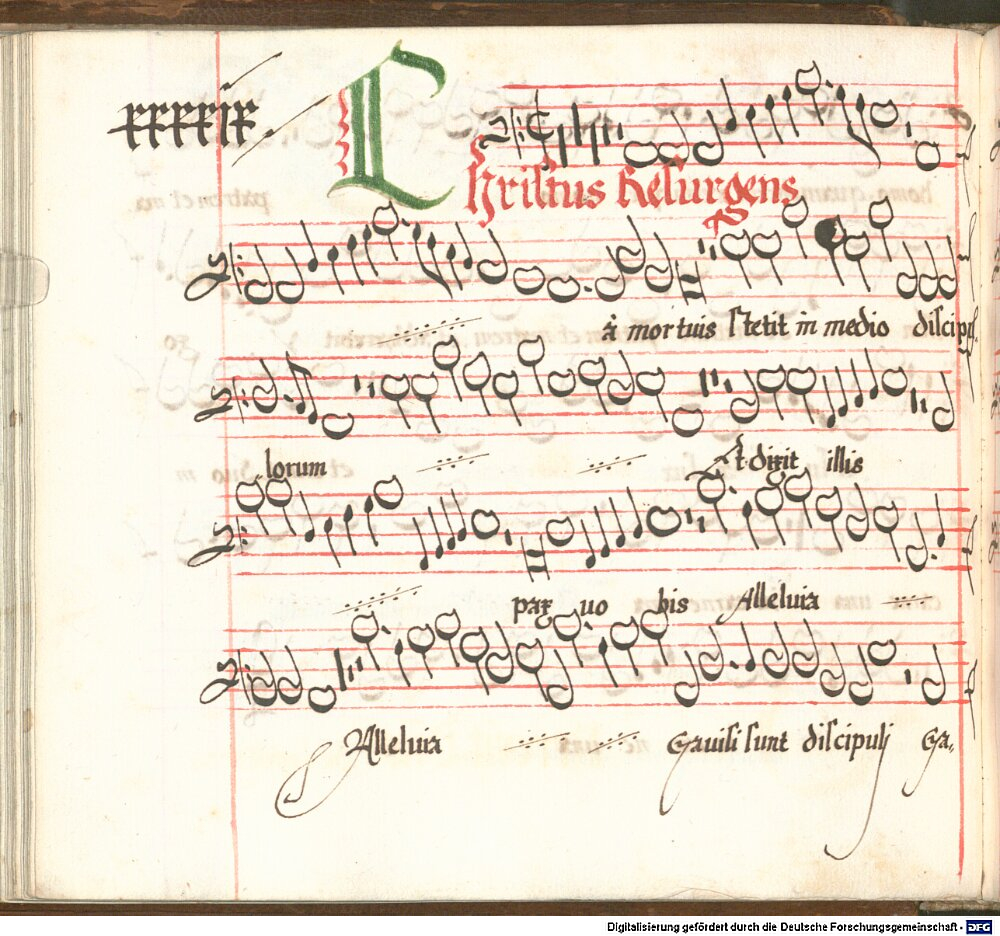 xxxxix
CHristus Resurgens
à mortuis stetit in medio discipu
lorum Et dixit illis
pax uo bis Alleluia
Alleluia Gauisi sunt discipulj Ga„
Digitalisierung gefördert durch die Deutsche Forschungsgemeinschaft - DFG